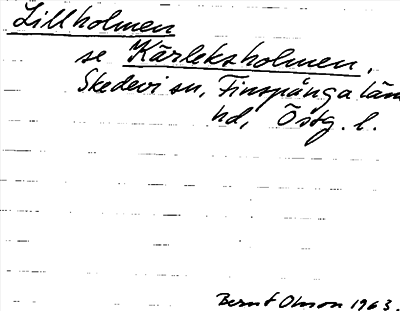 Lillholmen
se Kärleksholmen,
Skedevi sn, Finspånga län
hd, Östg. l.
Bernt Olsson 1963.